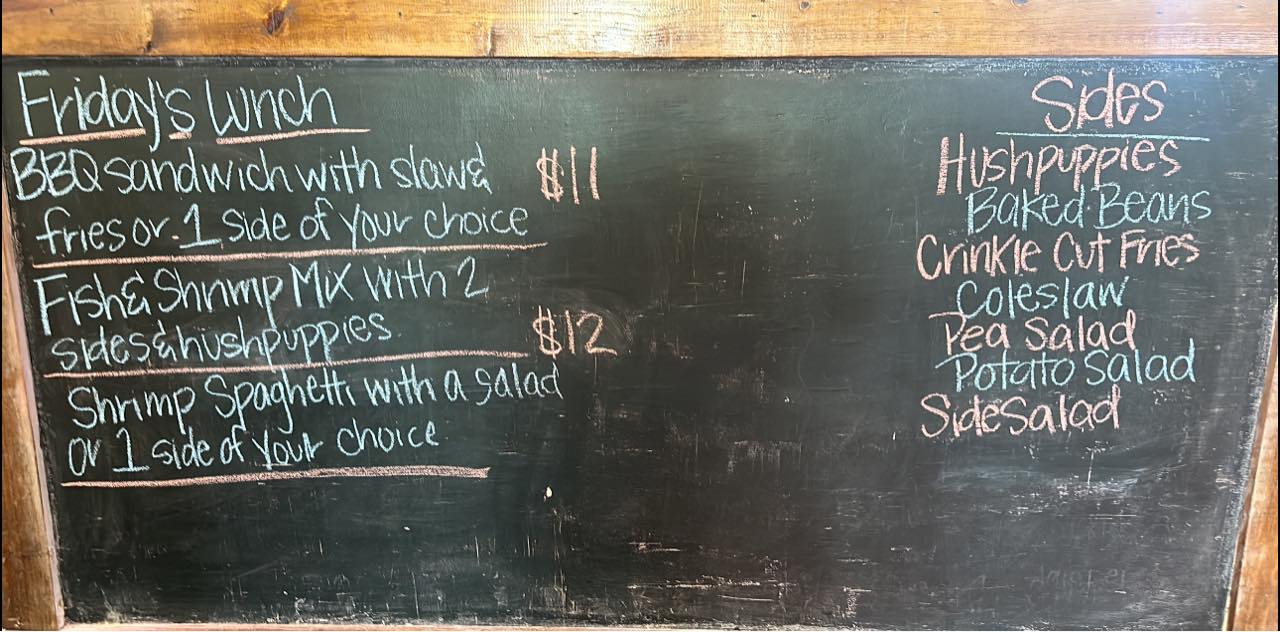 Friday's Lunch
BBQ sandwich with slaw & $11
fries or 1 side of your choice
Fish & Shrimp Mix with 2
sides & hushpuppies. $12
Shrimp Spaghetti with a salad
or 1 side of your choice
Sides
Hushpuppies
Baked Beans
Crinkle Cut Fries
Coleslaw
Pea Salad
Potato Salad
Side Salad